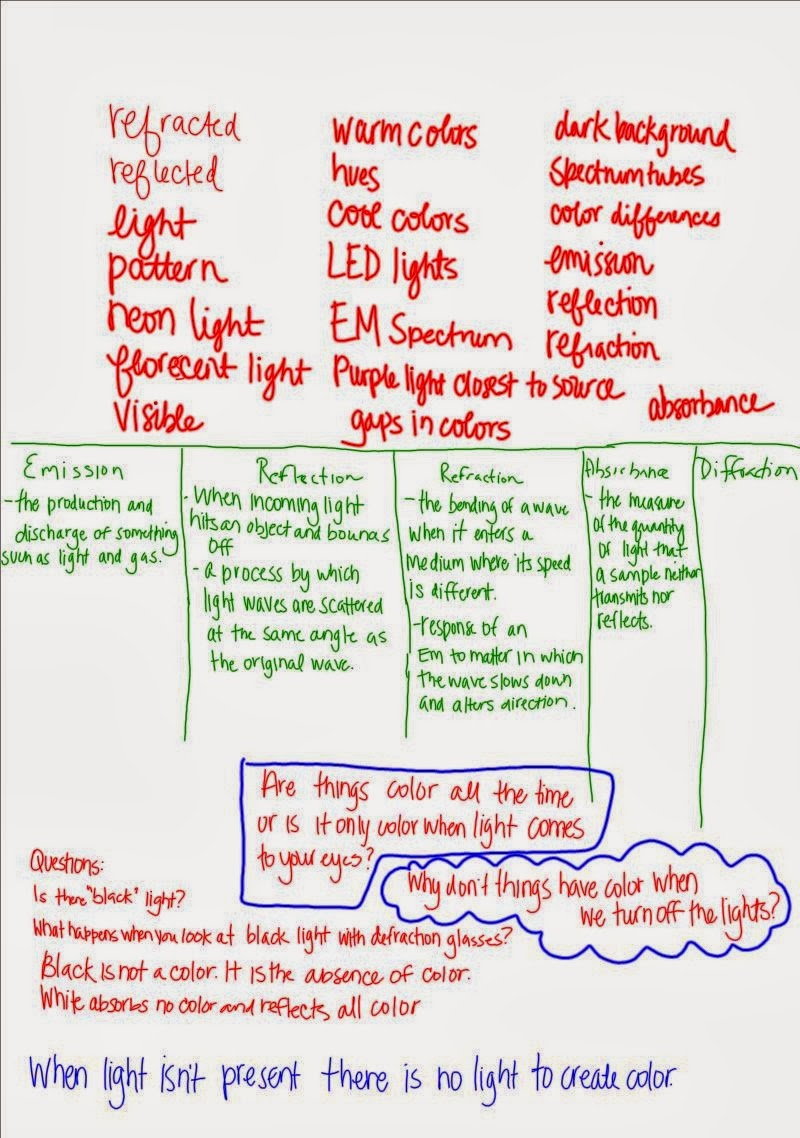 refracted
reflected
light
pattern
neon light
florescent light
Visible
warm colors
hues
cool colors
LED lights
EM Spectrum
Purple light closest to source
gaps in colors
dark background
Spectrum tubes
color differences
emission
reflection
refraction
absorbance
Emission
- the production and
discharge of something
such as light and gas.
Reflection
- When incoming light
hits an object and bounces
off
- a process by which
light waves are scattered
at the same angle as
the original wave.
Refraction
- the bending of a wave
when it enters a
medium where its speed
is different.
- response of an
Em to matter in which
the wave slows down
and alters direction.
Absorbance
- the measure
of the quantity
of light that
a sample neither
transmits nor
reflects.
Diffraction
Are things color all the time
or is it only color when light comes
to your eyes?
Why don't things have color when
we turn off the lights?
Questions:
Is there "black" light?
What happens when you look at black light with defraction glasses?
Black is not a color. It is the absence of color.
White absorbs no color and reflects all color
When light isn't present there is no light to create color.